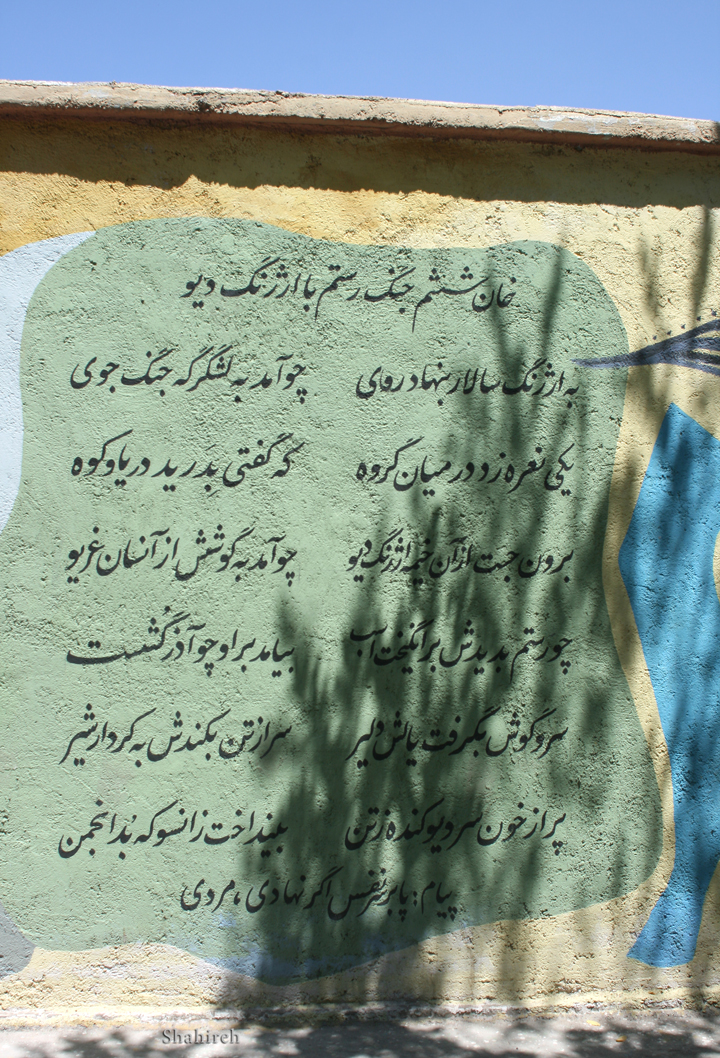 خان ششم جنگ رستم با ارژنگ دیو
به ارژنگ سالار بنهاد روی چو آمد به لشگرگه جنگ جوی
یکی نعره زد در میان گروه که گفتی بِدَرید دریا و کوه
برون جست از آن خیمه ارژنگ دیو چو آمد به گوشش از آنسان غریو
چو رستم بدیدش برانگیخت اسب بیامد بر او چو آذر گُشسب
سر و گوش بگرفت یالش دلیر سر از تن بکندش به کردار شیر
پر از خون سر دیو کنده ز تن بینداخت زانسو که بُد انجمن
پیام: پا بر سر نفس اگر نهادی، مردی
Shahireh